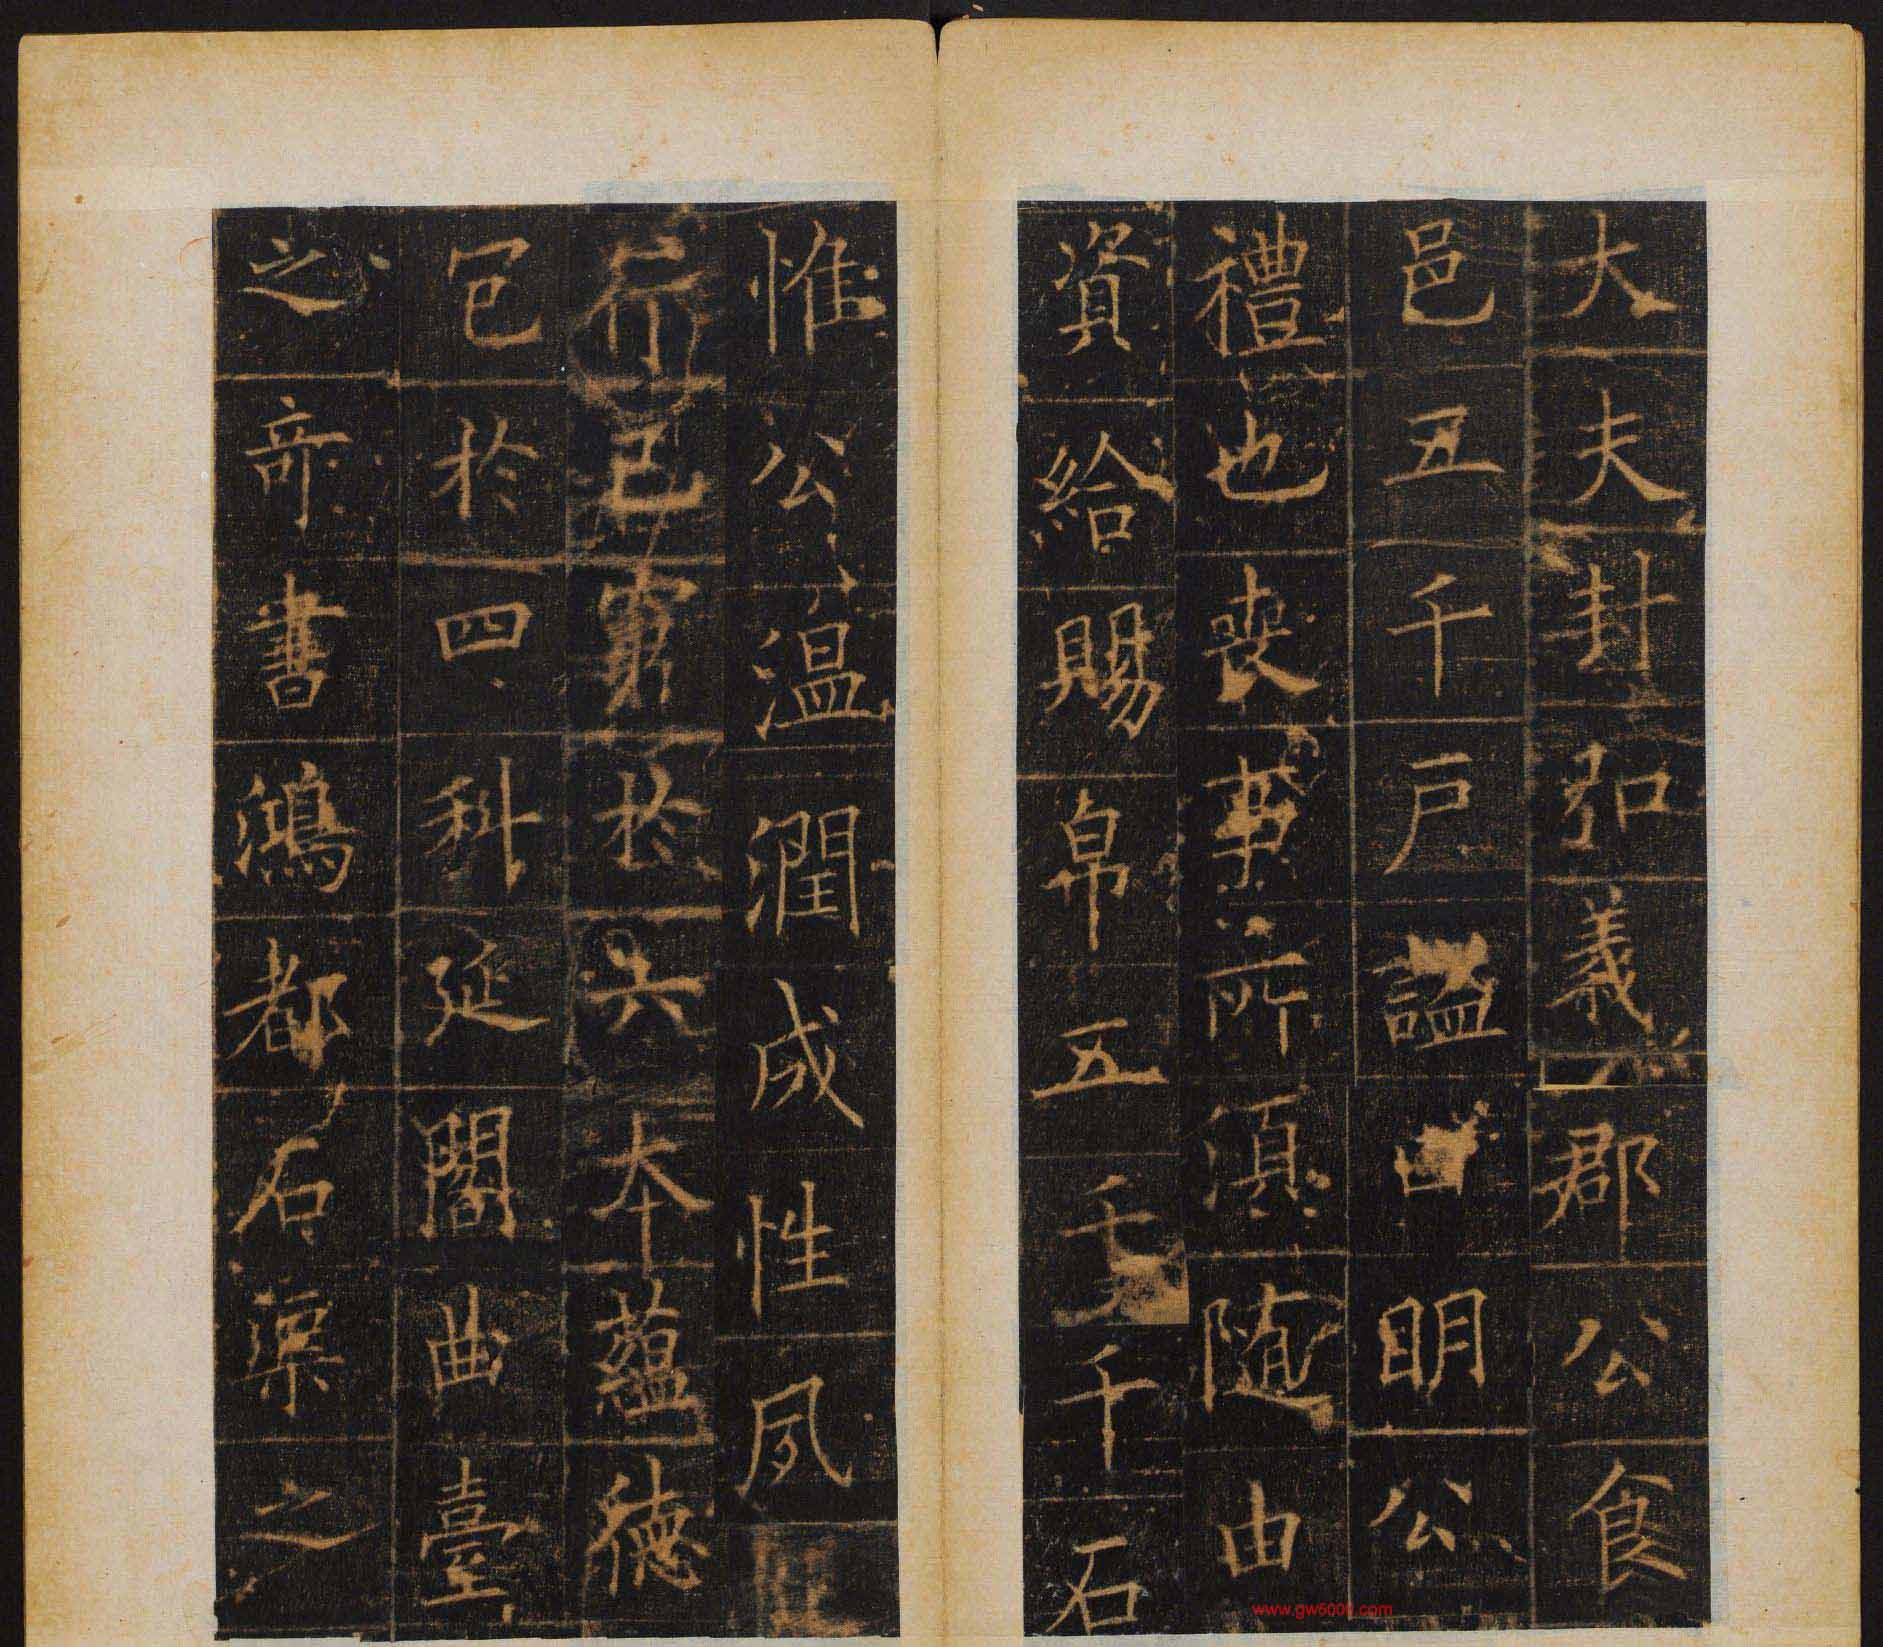 大夫封弘義郡公食
邑五千戶謚曰明公
禮也喪事所須随由
資給賜帛五千千石
惟公温潤成性夙
行己窮於六本蘊德
包於四科延閣曲臺
之奇書鴻都石渠之
www.gw5000.com